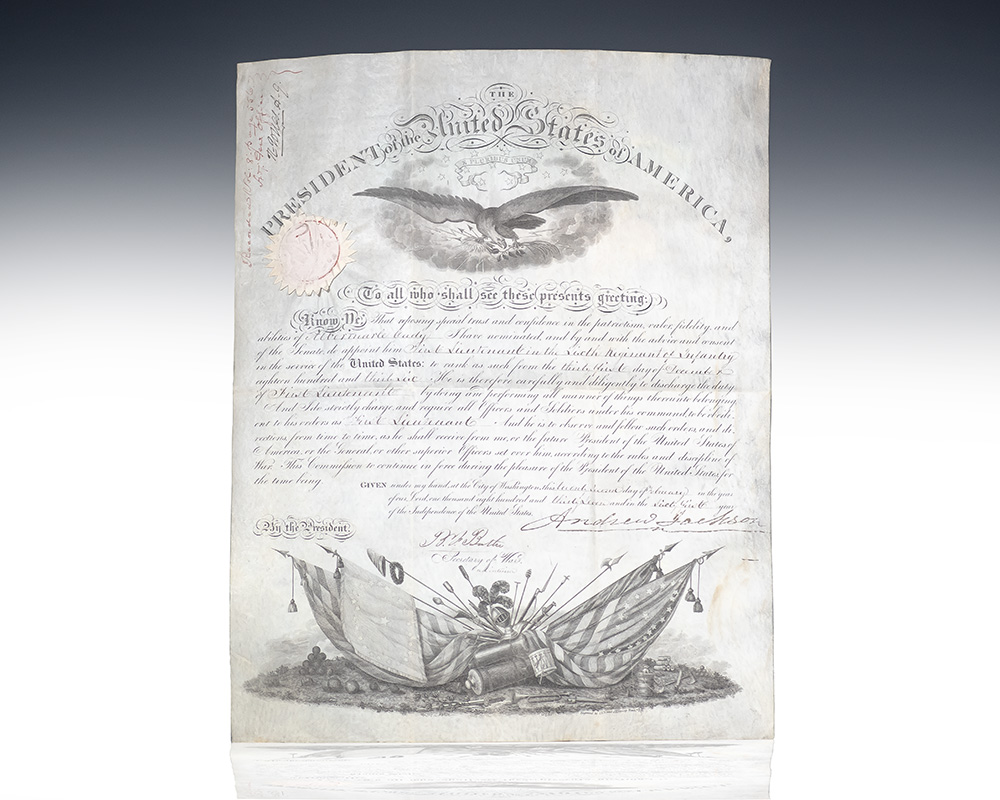 THE
PRESIDENT of the United States of AMERICA,
E PLURIBUS UNUM
To all who shall see these presents greeting:
Know Ye, That reposing special trust and confidence in the patriotism, valor, fidelity, and
abilities of Albemarle Cady I have nominated, and by and with the advice and consent
of the Senate, do appoint him First Lieutenant in the Sixth Regiment of Infantry
in the service of the United States: to rank as such from the thirty first day of December
eighteen hundred and thirty six. He is therefore carefully and diligently to discharge the duty
of First Lieutenant by doing and performing all manner of things thereunto belonging.
And I do strictly charge, and require all Officers and Soldiers under his command, to be obedi-
ent to his orders as First Lieutenant. And he is to observe and follow such orders, and di-
rections, from time to time, as he shall receive from me, or the future President of the United States of
America, or the General, or other superior Officers set over him, according to the rules and discipline of
War. This Commission to continue in force during the pleasure of the President of the United States, for
the time being.
GIVEN under my hand, at the City of Washington, this twenty second day of January in the year
of our Lord, one thousand eight hundred and thirty seven and in the sixty first year
of the Independence of the United States.
Andrew Jackson
By the President,
B. F. Butler
Secretary of War
ad interim